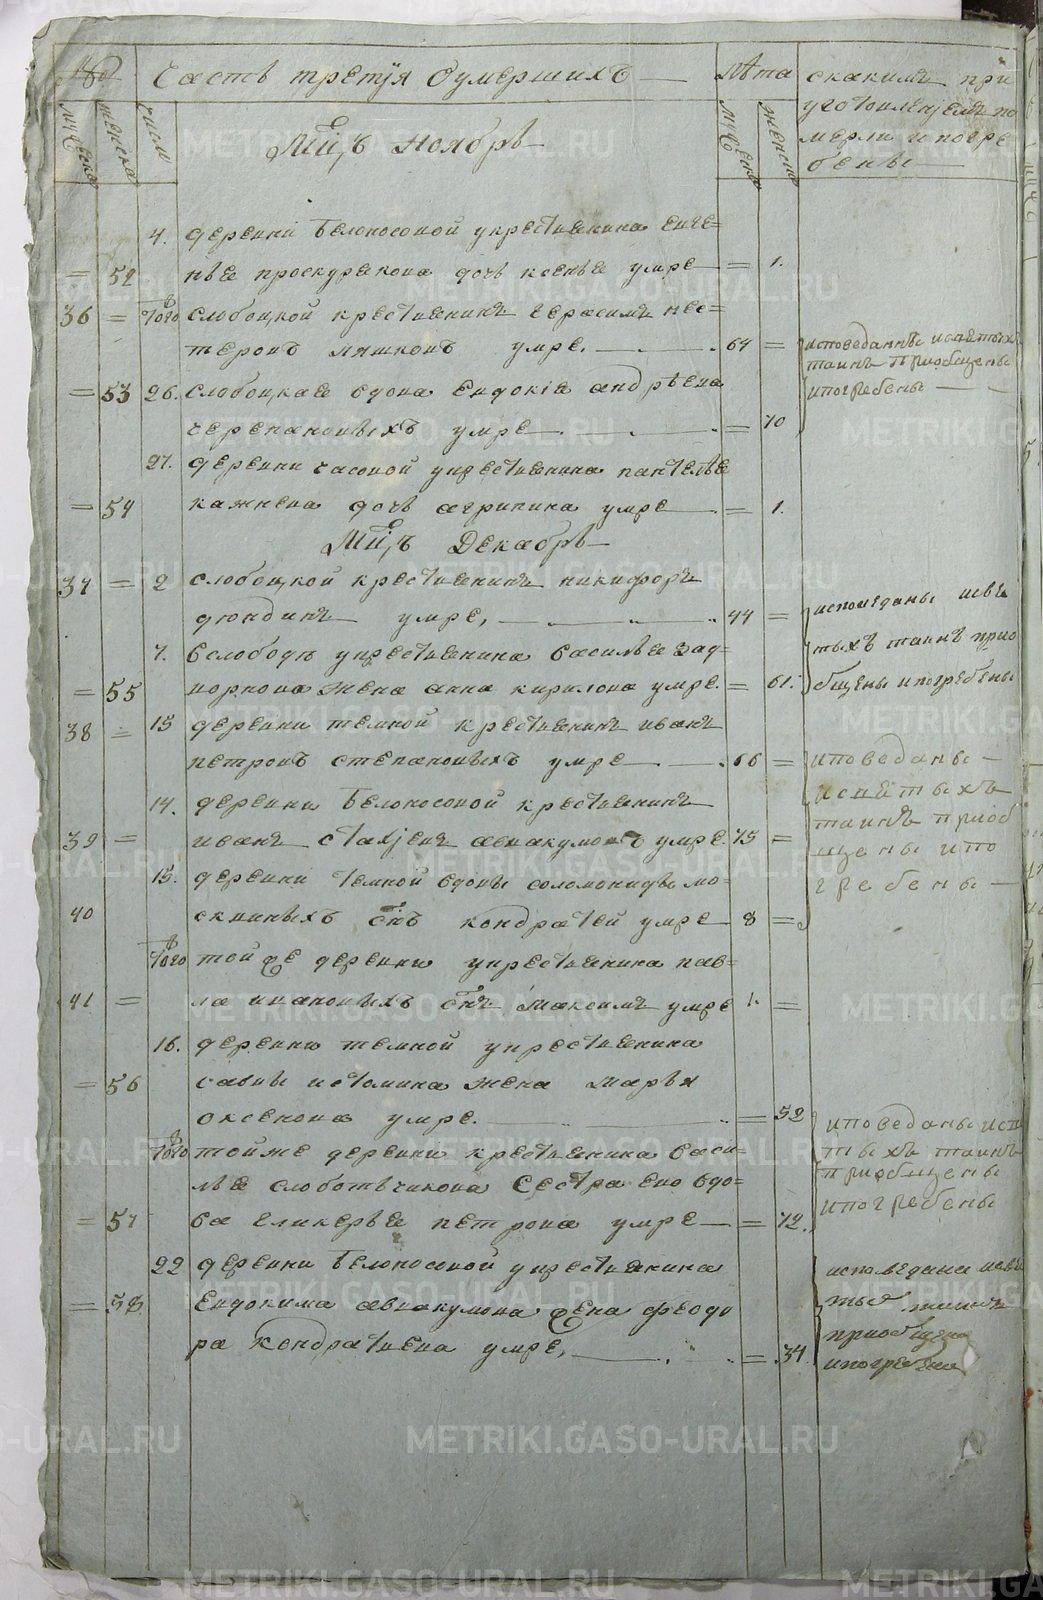 №
Часть третїя оумершихъ
лѣта
скакимъ при
уготовленїемъ по
мерли и погре
бены
мужеска
женска
число
мужеска
женска
Мцъ ноябрь
4. деревни Белоносовой укрестьянина Евге=
= 52 нья проскурекова дочь ксенья умре = 1.
36 = того слобоцкой крестьянинъ герасимъ нес=
теровъ ляшковъ умре. 64 =
исповеданы исвятыхъ
таинъ Приобщены
ипогребены
= 53 26. слобоцкая вдова Евдокия андрѣева
черепановыхъ умре = 70
27. деревни часовой укрестьянина пантелѣя
= 54 кажнева дочь агрипина умре = 1.
Мцъ Декабрь
37 = 2 слобоцкой крестьянинъ никифоръ
дюндинъ умре, 44 =
исповеданы исвя
тыхъ таинъ прио
бщены ипогребены
7. Вслободѣ укрестьянина Василья Зад=
= 55 ворнова жена анна кирилова умре. = 61.
38 = 15 деревни темной крестьянинъ иванъ
петровъ степановыхъ умре 66 =
иповеданы
исвятыхъ
таинъ приоб
щены ипо
гребены
14. деревни Белоносовой крестьянинъ
39 = иванъ стахїевъ авакумовъ умре. 75 =
15. деревни темной вдовы соломониды мо=
40 сквиныхъ снъ кондратей умре 8 =
того той же деревни укрестьянина пав=
41 = ла ивановыхъ снъ Максимъ умре 1. =
16. деревни темной укрестьянина
= 56 савы истомина жена Марья
оксенова умре. = 52
иповеданы исвя
тыхъ таинъ
приобщены
ипогребены
того тойже деревни крестьянина Васи=
лья слоботчикова Сестра ево вдо=
= 57 ва гликерья петрова умре = 72.
22 деревни Белоносовой укрестьянина
= 58 Евдокима авакумова жена феодо
ра кондратьева умре, = 34
исповедана исвя
тыхъ таинъ
приобщена
ипогребена
METRIKI.GASO-URAL.RU